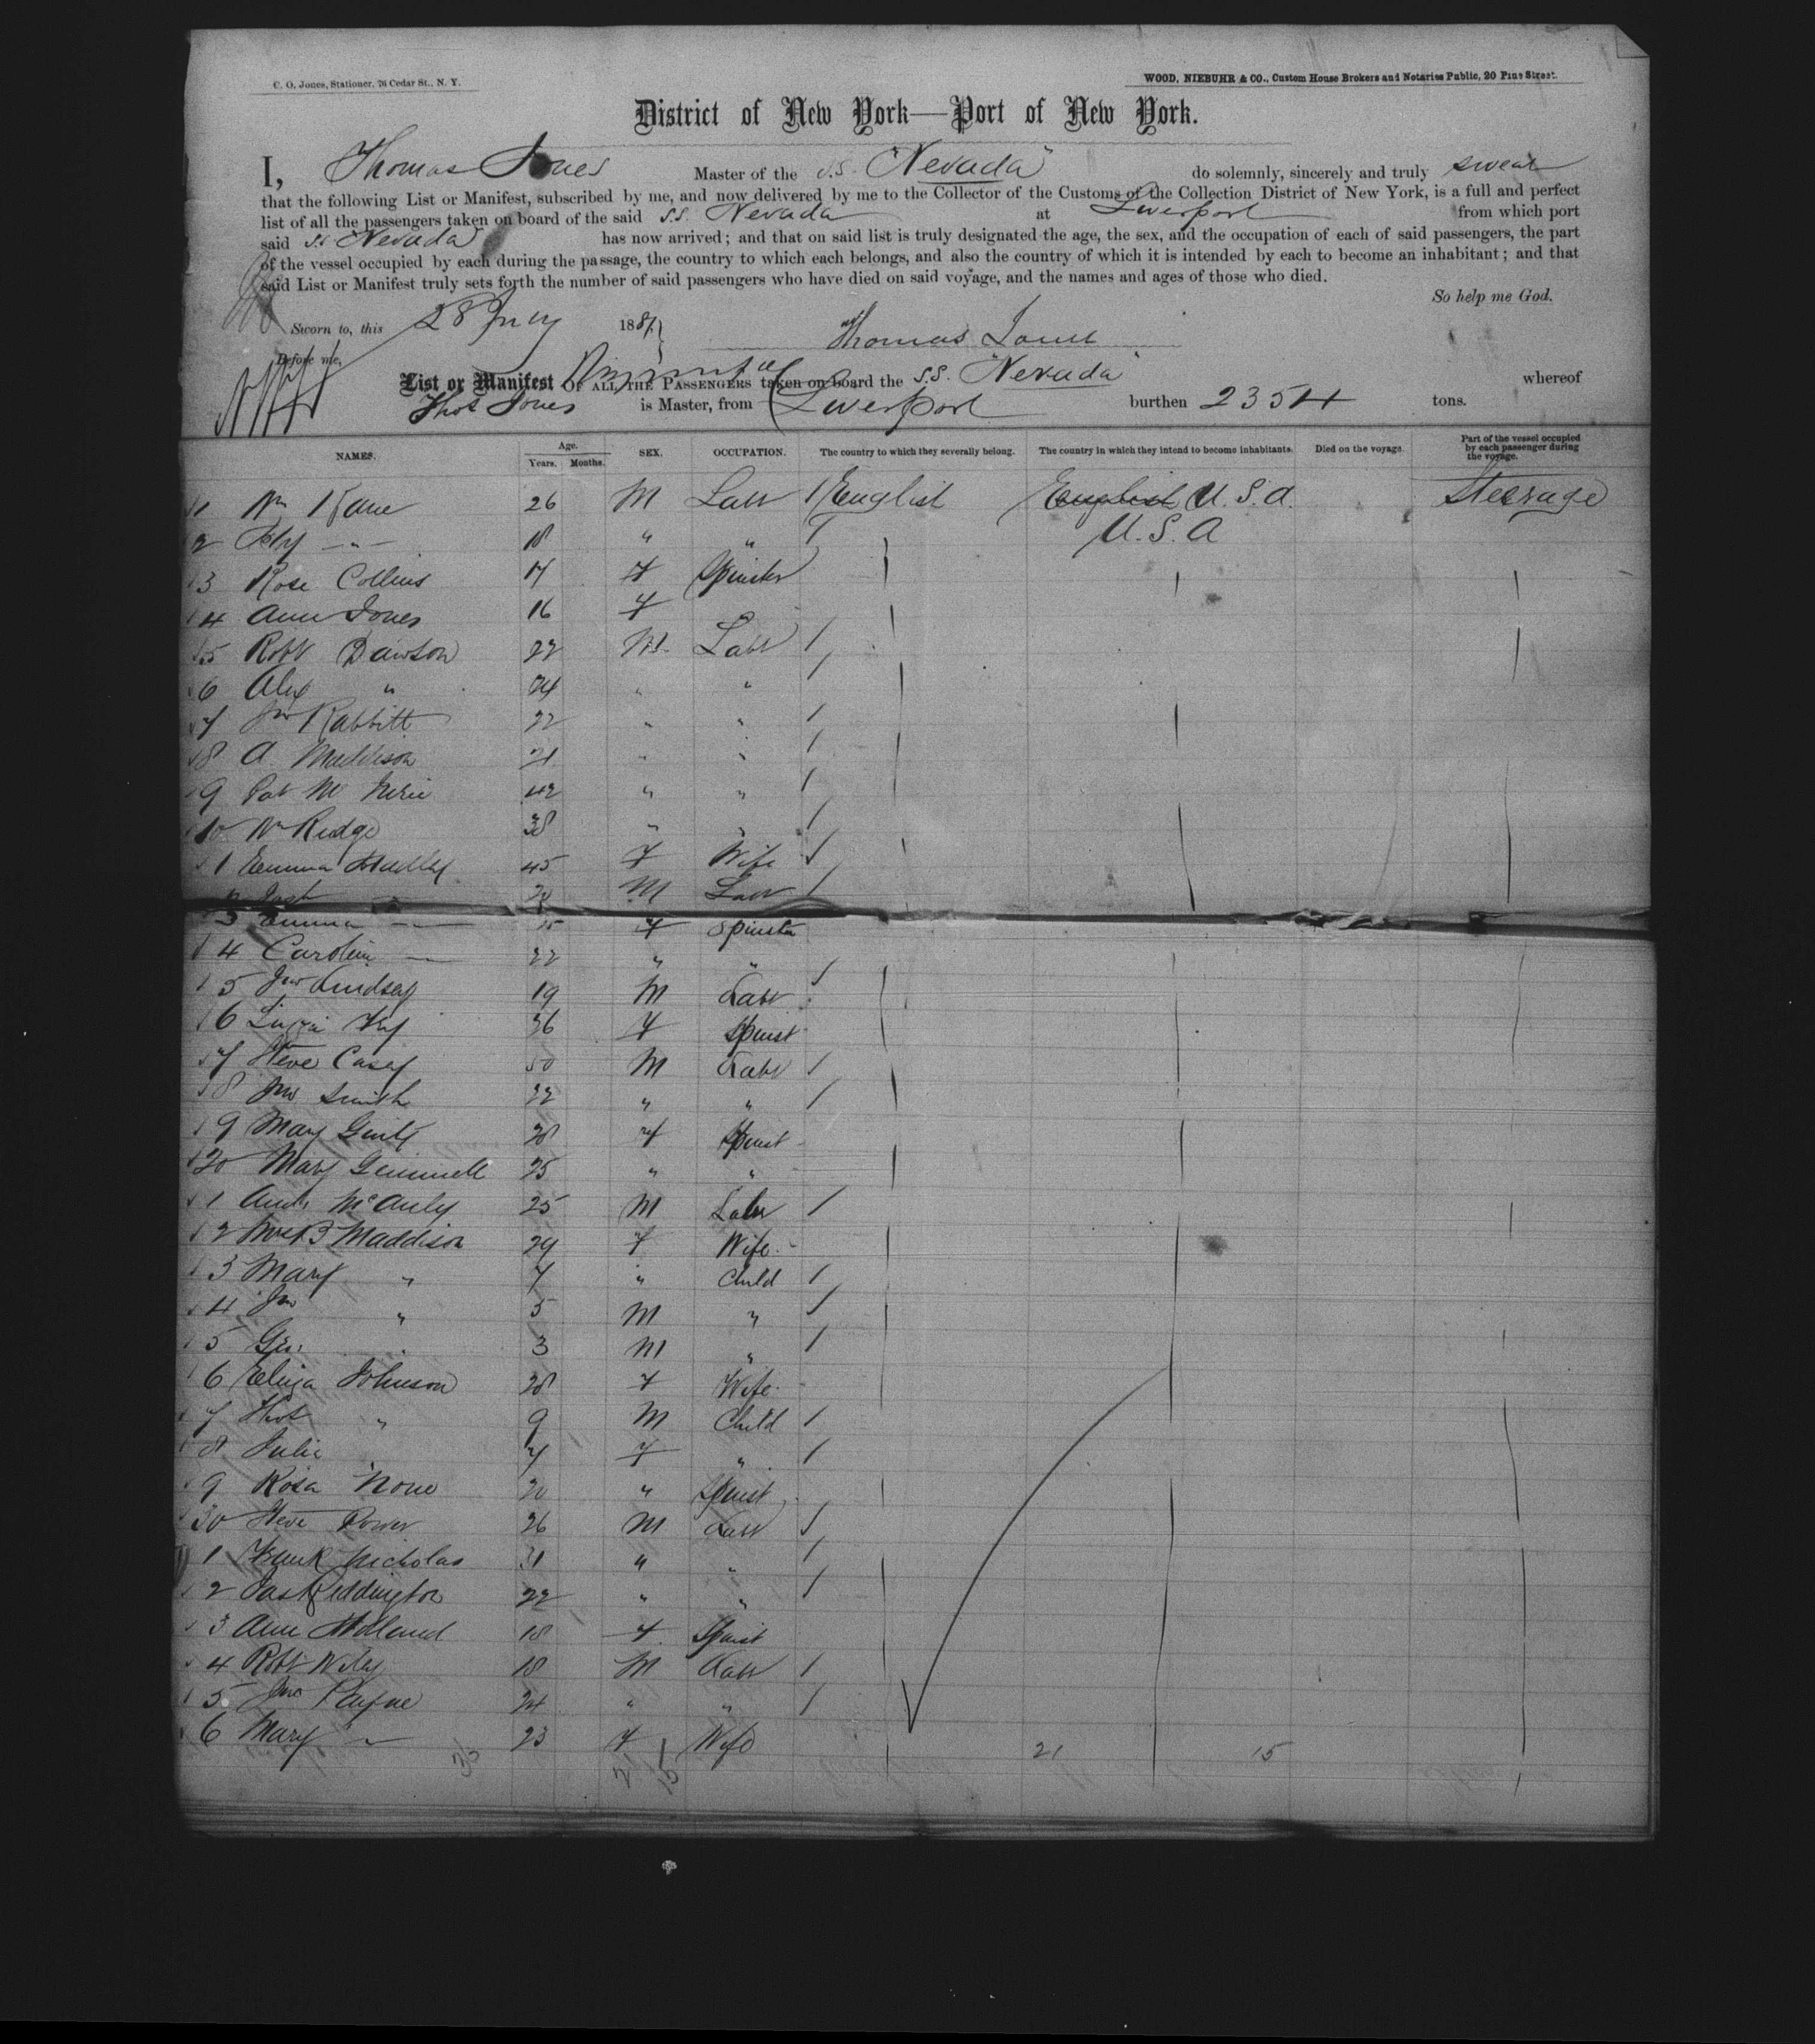 C. O. Jones, Stationer, 76 Cedar St., N. Y.
WOOD, NIEBUHR & CO., Custom House Brokers and Notaries Public, 20 Pine Street.
District of New York—Port of New York.
I, Thomas Jones Master of the S.S. "Nevada" do solemnly, sincerely and truly swear
that the following List or Manifest, subscribed by me, and now delivered by me to the Collector of the Customs of the Collection District of New York, is a full and perfect
list of all the passengers taken on board of the said S.S. Nevada at Liverpool from which port
said SS Nevada has now arrived; and that on said list is truly designated the age, the sex, and the occupation of each of said passengers, the part
of the vessel occupied by each during the passage, the country to which each belongs, and also the country of which it is intended by each to become an inhabitant; and that
said List or Manifest truly sets forth the number of said passengers who have died on said voyage, and the names and ages of those who died.
So help me God.
Sworn to, this 28 July 188
Thomas Jones
Before me,
List or Manifest OF ALL THE PASSENGERS taken on board the S.S. "Nevada" whereof
Thos Jones is Master, from Liverpool burthen 2354 tons.
NAMES. Age. Years. Months. SEX. OCCUPATION. The country to which they severally belong. The country in which they intend to become inhabitants. Died on the voyage. Part of the vessel occupied by each passenger during the voyage.
1 Wm Kane 26 M Labr English English U.S.A. Steerage
2 18 " " U.S.A
3 Rose Collins 17 F Spinster
4 Ann Jones 16 F
5 Robt Dawson 22 M Labr
6 Alex " 24 " "
7 Jno Rabbitt 22 " "
8 A. Maddison 21 " "
9 Pat Mc 42 " "
10 Wm Ridge 38 " "
1 Emma 45 F Wife
2 M Labr
3 Emma — F Spinster
4 Caroline — 22 " "
5 Jno Lindsay 19 M Labr
6 36 F Spinst
7 Steve Casey 50 M Labr
8 Jno Smith 22 " "
9 Mary 28 F Spinst
20 Mary Gemmell 25 " "
1 Andw McAuly 25 M Labr
2 Mrs B Maddison 29 F Wife
3 Mary " 7 " Child
4 Jno " 5 M "
5 Geo " 3 M "
6 Eliza Johnson 28 F Wife
7 Thos " 9 M Child
8 Julia 7 F "
9 Rosa None 20 " Spinst
30 Steve Power 26 M Labr
1 Frank Nicholas 31 " "
2 Jas Reddington 22 " "
3 Ann Holland 18 F Spinst
4 Robt Wiley 18 M Labr
5 Jno Payne 24 " "
6 Mary — 23 F Wife
36 21 15 21 15